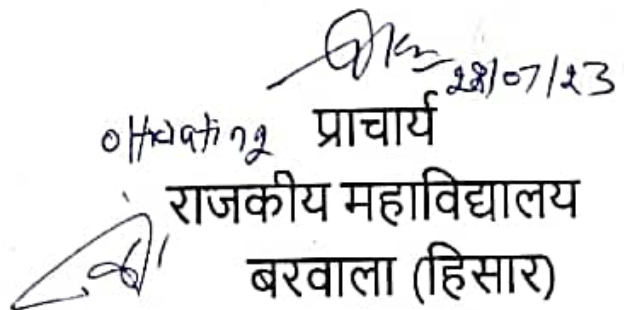 28/07/23
offciating प्राचार्य
राजकीय महाविद्यालय
बरवाला (हिसार)